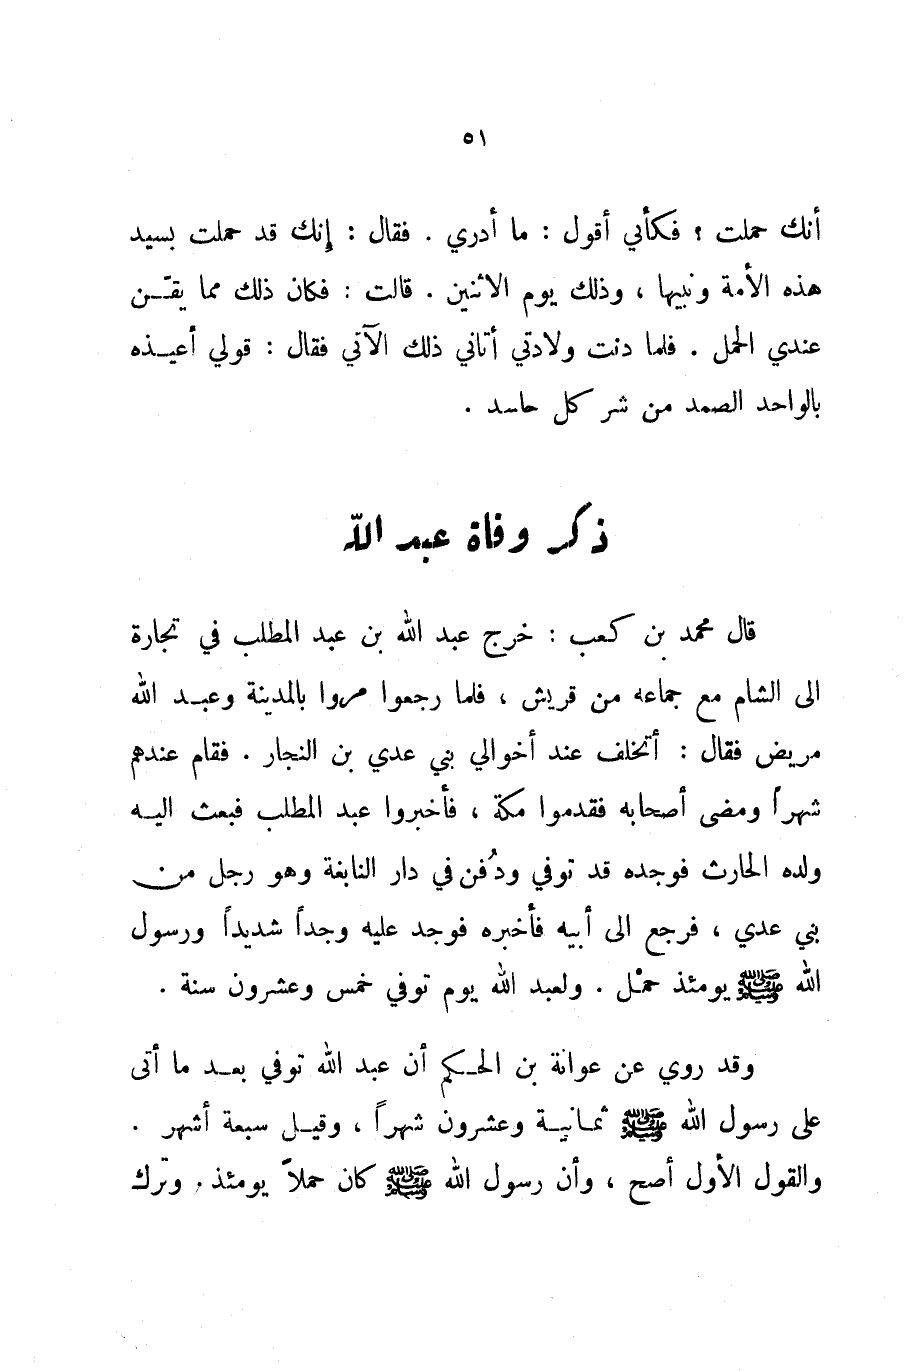 ٥١
أنك حملت ؟ فكأني أقول : ما أدري . فقال : إنك قد حملت بسيد
هذه الأمة ونبيها ، وذلك يوم الاثنين . قالت : فكان ذلك مما يقّن
عندي الحمل . فلما دنت ولادتي أتاني ذلك الآتي فقال : قولي أعيذه
بالواحد الصمد من شر كل حاسد .
ذكر وفاة عبد الله
قال محمد بن كعب : خرج عبد الله بن عبد المطلب في تجارة
الى الشام مع جماعه من قريش ، فلما رجعوا مروا بالمدينة وعبد الله
مريض فقال : أتخلف عند أخوالي بني عدي بن النجار . فقام عندهم
شهراً ومضى أصحابه فقدموا مكة ، فأخبروا عبد المطلب فبعث اليه
ولده الحارث فوجده قد توفي ودُفن في دار النابغة وهو رجل من
بني عدي ، فرجع الى أبيه فأخبره فوجد عليه وجداً شديداً ورسول
الله ﷺ يومئذ حمْل . ولعبد الله يوم توفي خمس وعشرون سنة .
وقد روي عن عوانة بن الحكم أن عبد الله توفي بعد ما أتى
على رسول الله ﷺ ثمانية وعشرون شهراً ، وقيل سبعة أشهر .
والقول الأول أصح ، وأن رسول الله ﷺ كان حملاً يومئذ . وترك